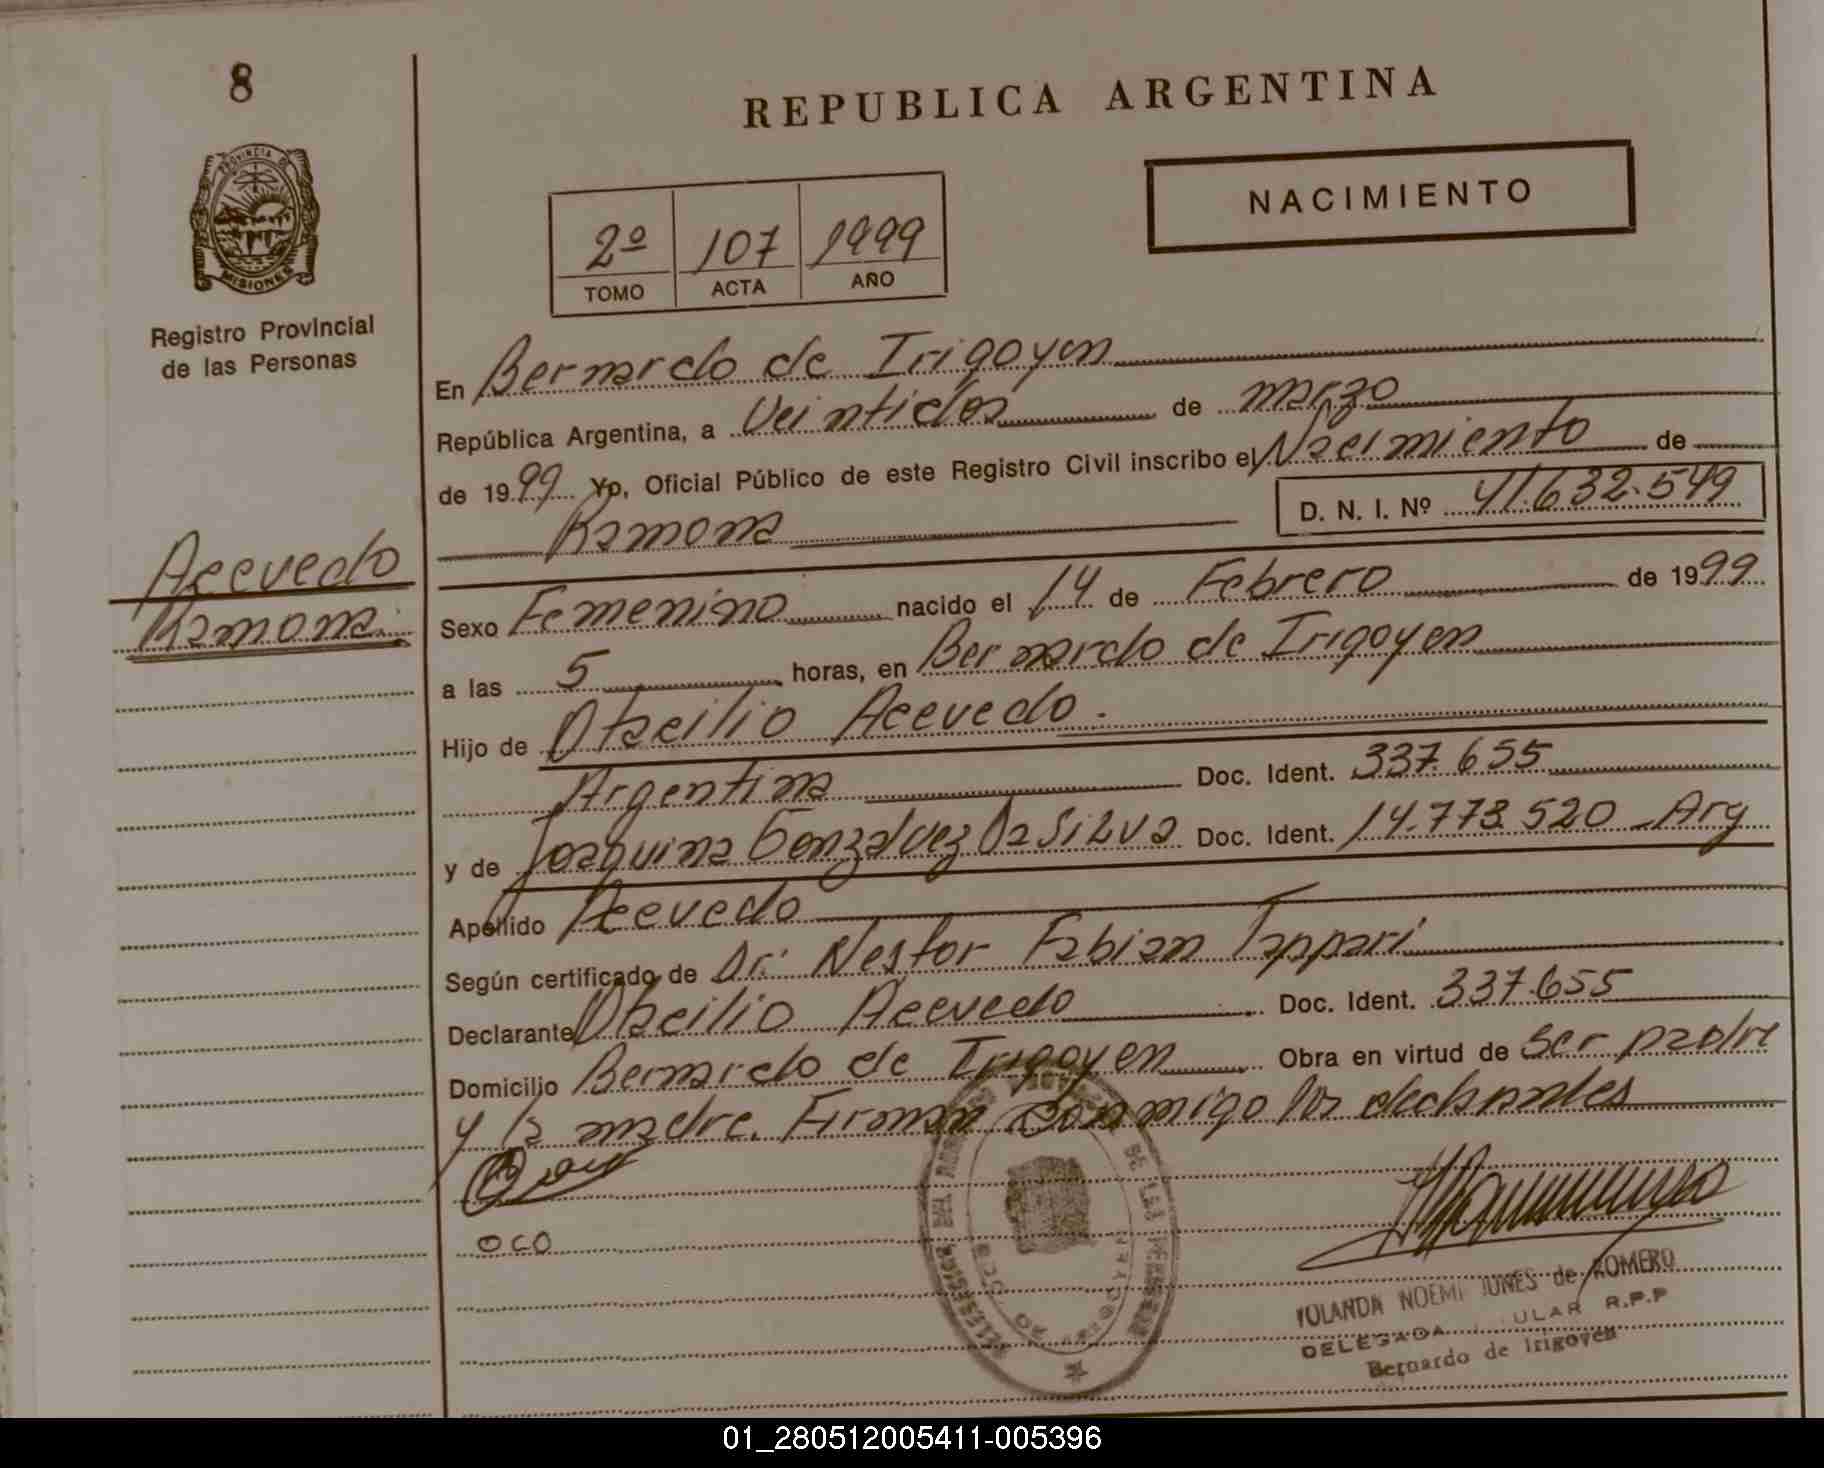 8
REPUBLICA ARGENTINA
NACIMIENTO
PROVINCIA DE
MISIONES
2º 107 1999
TOMO ACTA AÑO
Registro Provincial
de las Personas
En Bernardo de Irigoyen
República Argentina, a Veintidos de marzo
de 1999 Yo, Oficial Público de este Registro Civil inscribo el Nacimiento de
Ramona D. N. I. Nº 41.632.549
Acevedo
Ramona.
Sexo Femenino nacido el 14 de Febrero de 1999
a las 5 horas, en Bernardo de Irigoyen
Hijo de Otacilio Acevedo.
Argentina Doc. Ident. 337.655
y de Joaquina Gonzalvez Da Silva Doc. Ident. 14.773.520 - Arg
Apellido Acevedo
Según certificado de Dr: Nestor Fabian Tappari
Declarante Otacilio Acevedo Doc. Ident. 337.655
Domicilio Bernardo de Irigoyen Obra en virtud de ser padre
y la madre. Firman conmigo los declarantes
OCO
YOLANDA NOEMI de ROMERO
DELEGADA R.P.P
Bernardo de Irigoyen
01_280512005411-005396